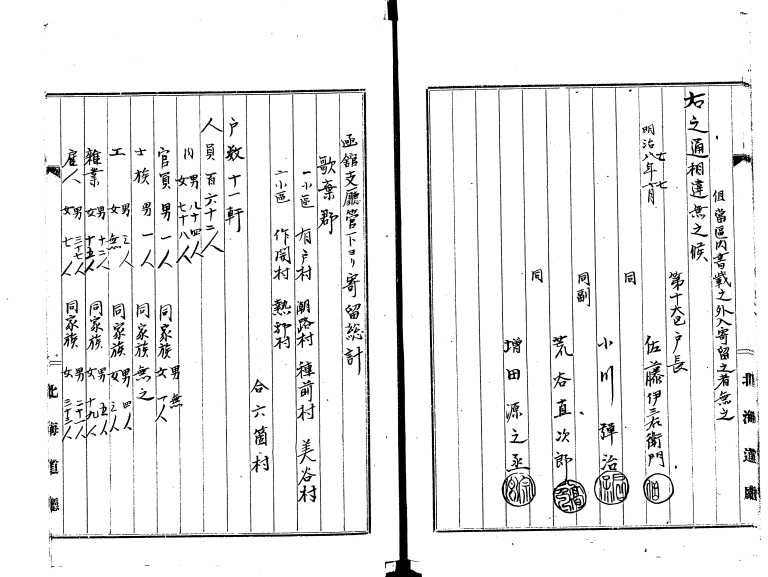 但当区内書載之外入寄留之者無之
右之通相違無之候
明治八年
第十大区戸長
佐藤伊三右衛門
同
小川弾治
同副
荒谷直次郎
同
増田源之丞
北海道庁
函館支庁管下ヨリ寄留総計
歌棄郡
一小区 有戸村 潮路村 種前村 美谷村
二小区 作開村 熱郛村
合六箇村
戸数十一軒
人員百六十二人
内 男八十四人
女七十八人
官員 男一人 同家族 男無
女一人
士族 男一人 同家族 無之
工 男三人 同家族 男四人
女無 女三人
雑業 男十二人 同家族 男五人
女十五人 女十九人
雇人 男三十七人 同家族 男二十一人
女七人 女三十三人
北海道庁